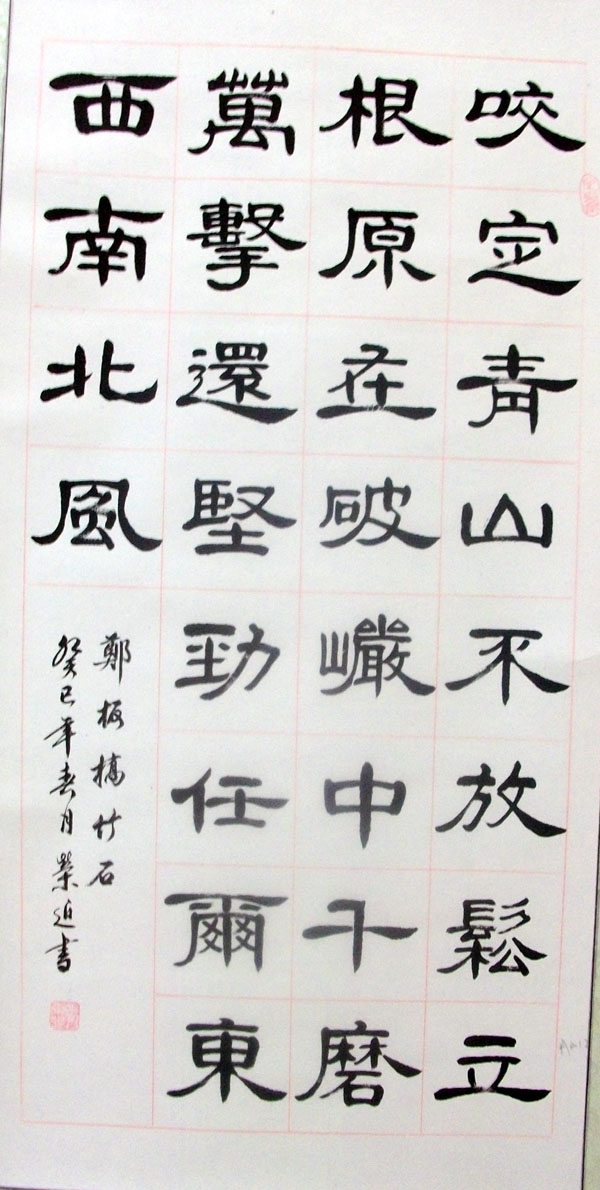 咬定青山不放鬆立
根原在破巖中千磨
萬擊還堅勁任爾東
西南北風
鄭板橋竹石
癸巳年春月榮迫書